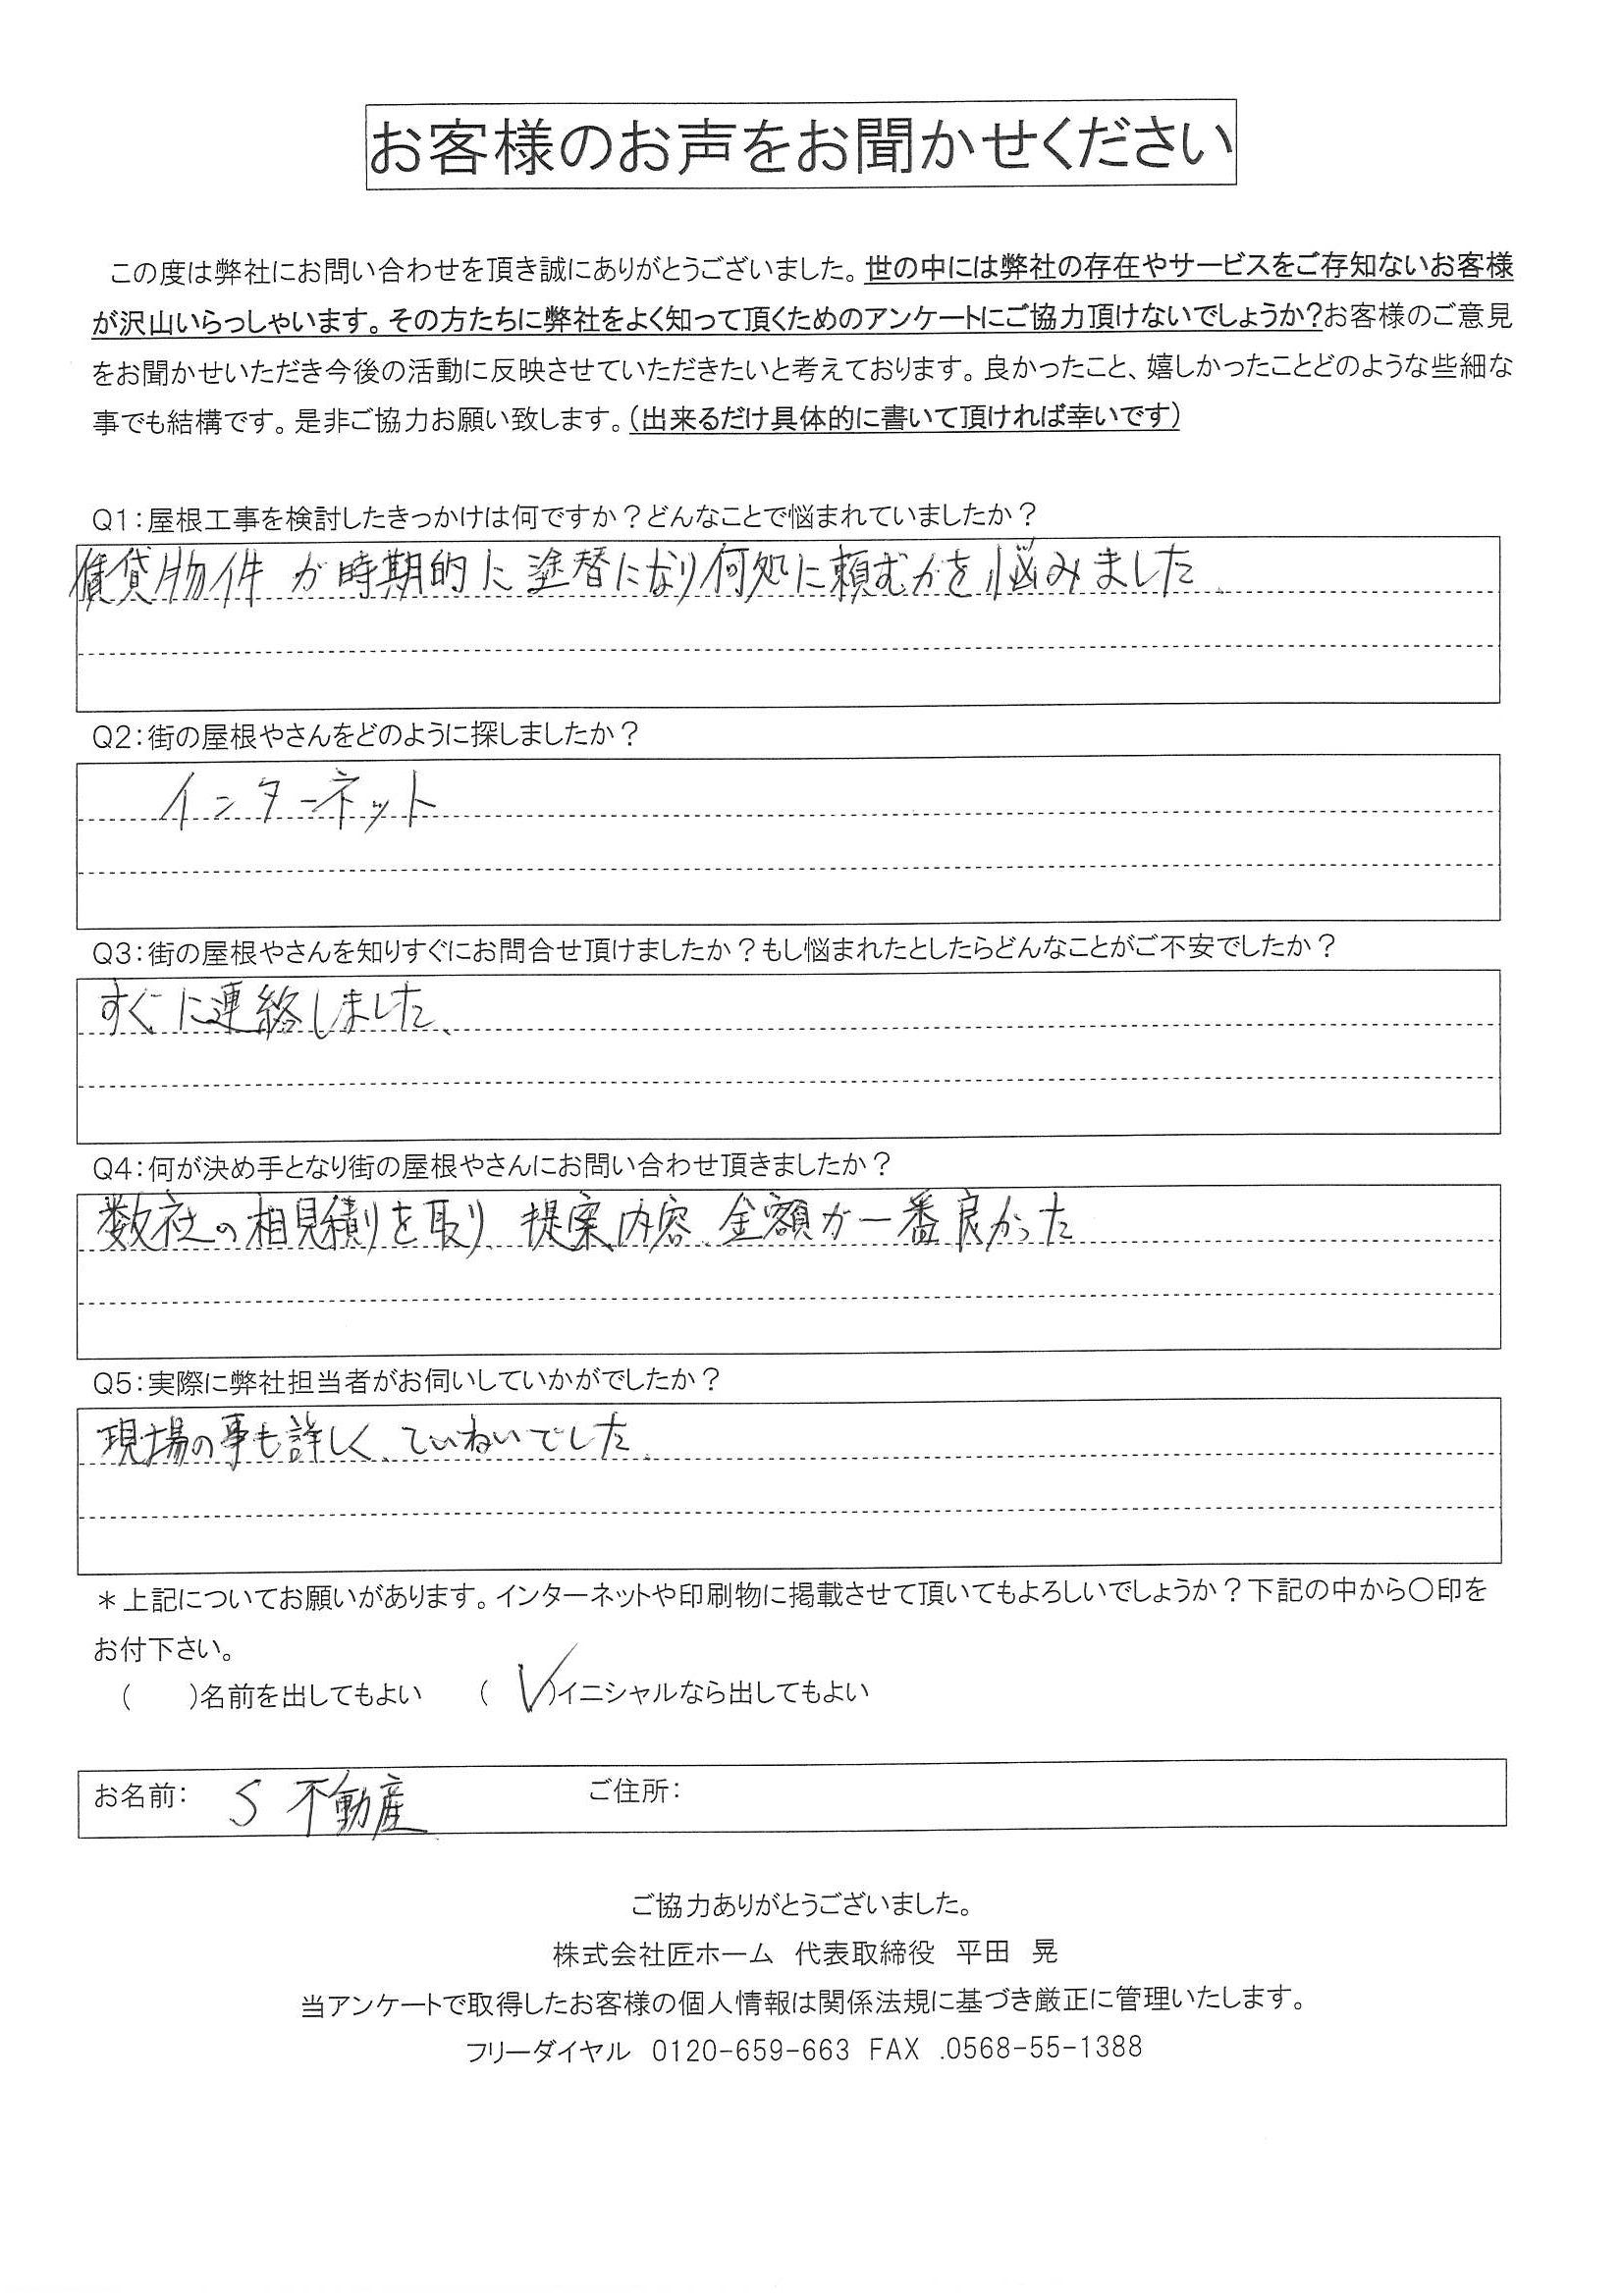 お客様のお声をお聞かせください
この度は弊社にお問い合わせを頂き誠にありがとうございました。世の中には弊社の存在やサービスをご存知ないお客様
が沢山いらっしゃいます。その方たちに弊社をよく知って頂くためのアンケートにご協力頂けないでしょうか?お客様のご意見
をお聞かせいただき今後の活動に反映させていただきたいと考えております。良かったこと、嬉しかったことどのような些細な
事でも結構です。是非ご協力お願い致します。(出来るだけ具体的に書いて頂ければ幸いです)
Q1:屋根工事を検討したきっかけは何ですか?どんなことで悩まれていましたか?
賃貸物件が時期的に塗替になり何処に頼むかを悩みました
Q2:街の屋根やさんをどのように探しましたか?
インターネット
Q3:街の屋根やさんを知りすぐにお問合せ頂けましたか?もし悩まれたとしたらどんなことがご不安でしたか?
すぐに連絡しました、
Q4:何が決め手となり街の屋根やさんにお問い合わせ頂きましたか?
数社の相見積りを取り 提案内容、金額が一番良かった
Q5:実際に弊社担当者がお伺いしていかがでしたか?
現場の事も詳しく、ていねいでした、
*上記についてお願いがあります。インターネットや印刷物に掲載させて頂いてもよろしいでしょうか?下記の中から○印を
お付下さい。
( )名前を出してもよい ( ✓)イニシャルなら出してもよい
お名前: S 不動産 ご住所:
ご協力ありがとうございました。
株式会社匠ホーム 代表取締役 平田 晃
当アンケートで取得したお客様の個人情報は関係法規に基づき厳正に管理いたします。
フリーダイヤル 0120-659-663 FAX .0568-55-1388